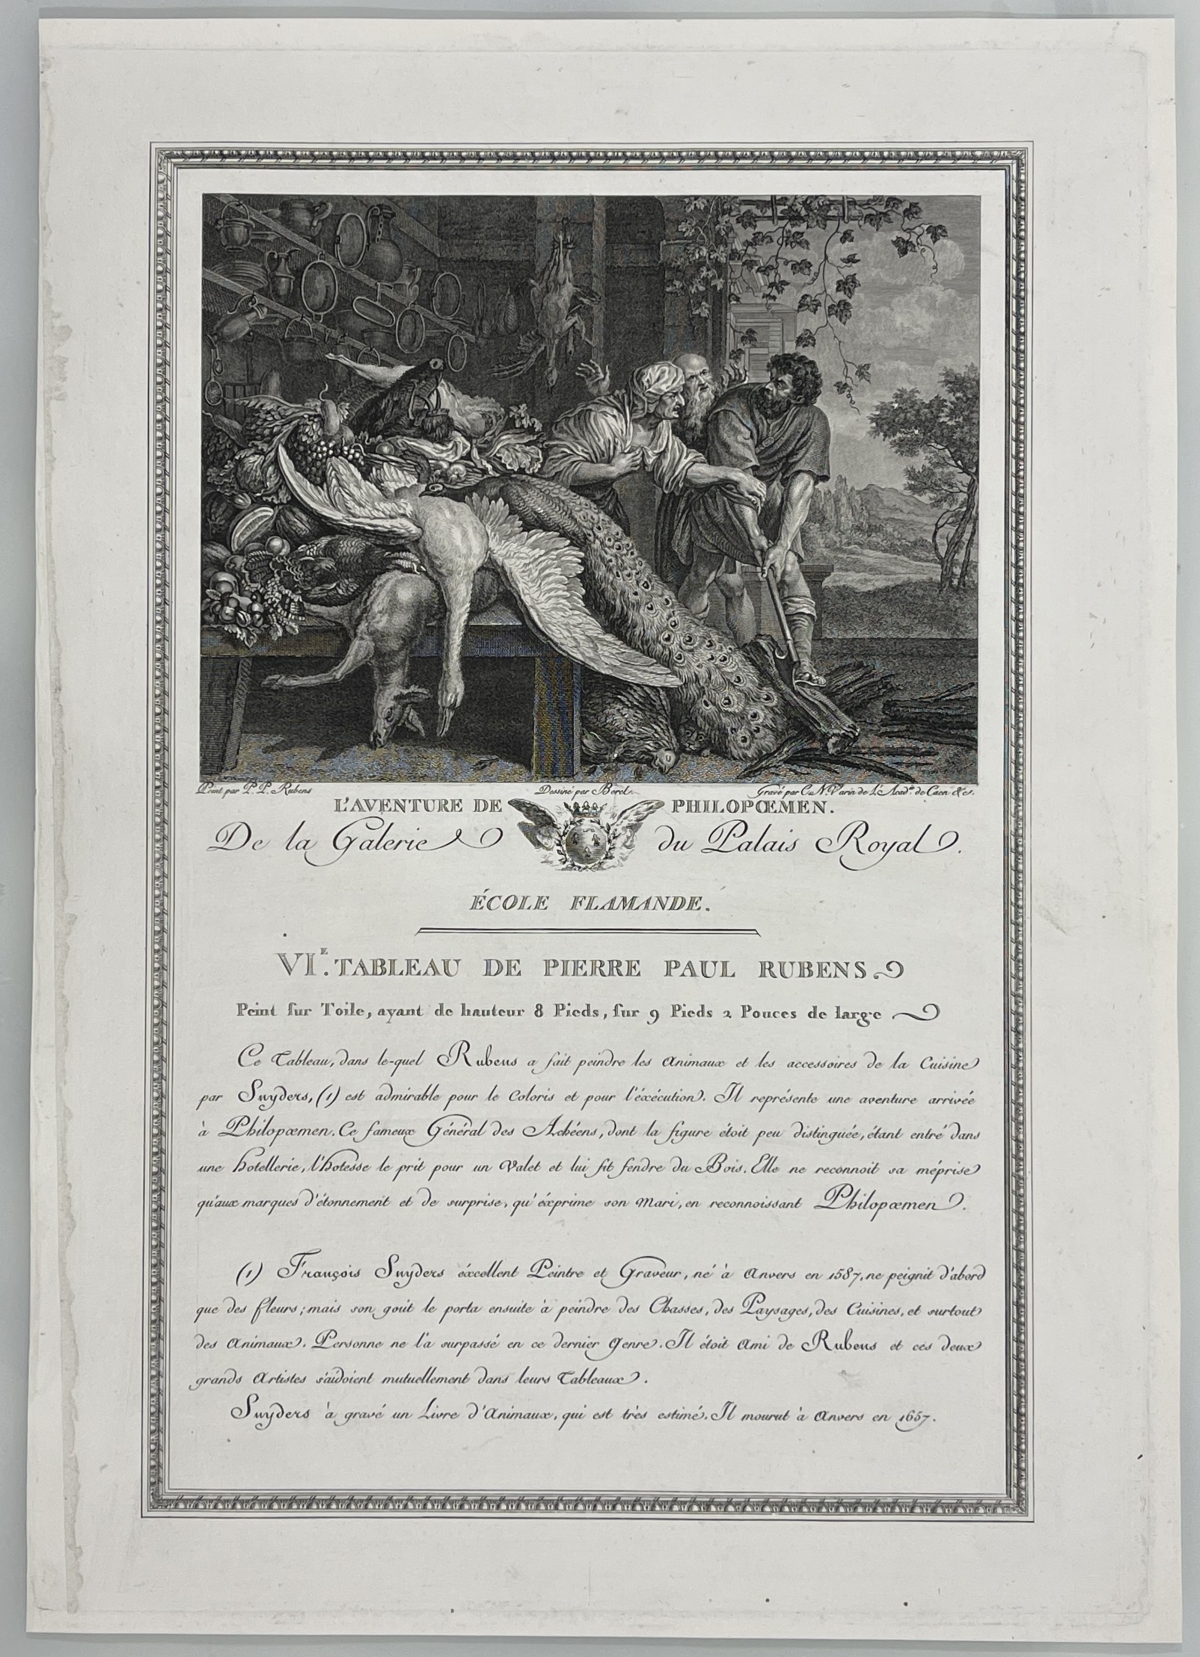 Peint par P. P. Rubens Dessiné par Borel Gravé par C. N. Varin de l'Acad.ie de Caen &c.
L'AVENTURE DE PHILOPŒMEN.
De la Galerie du Palais Royal.
ÉCOLE FLAMANDE.
VI.E TABLEAU DE PIERRE PAUL RUBENS.
Peint sur Toile, ayant de hauteur 8 Pieds, sur 9 Pieds 2 Pouces de large
Ce Tableau, dans le-quel Rubens a fait peindre les Animaux et les accessoires de la Cuisine
par Snyders, (1) est admirable pour le Coloris et pour l'éxécution. Il représente une aventure arrivée
à Philopœmen. Ce fameux Général des Achéens, dont la figure étoit peu distinguée, étant entré dans
une hotellerie, l'hotesse le prit pour un Valet et lui fit fendre du Bois. Elle ne reconnoit sa méprise
qu'aux marques d'étonnement et de surprise, qu'éxprime son Mari, en reconnoissant Philopœmen.
(1) François Snyders éxcellent Peintre et Graveur, né à Anvers en 1587, ne peignit d'abord
que des fleurs; mais son goût le porta ensuite à peindre des Chasses, des Paysages, des Cuisines, et surtout
des Animaux. Personne ne l'a surpassé en ce dernier Genre. Il étoit Ami de Rubens et ces deux
grands Artistes s'aidoient mutuellement dans leurs Tableaux.
Snyders à gravé un Livre d'Animaux, qui est très estimé. Il mourut à Anvers en 1657.